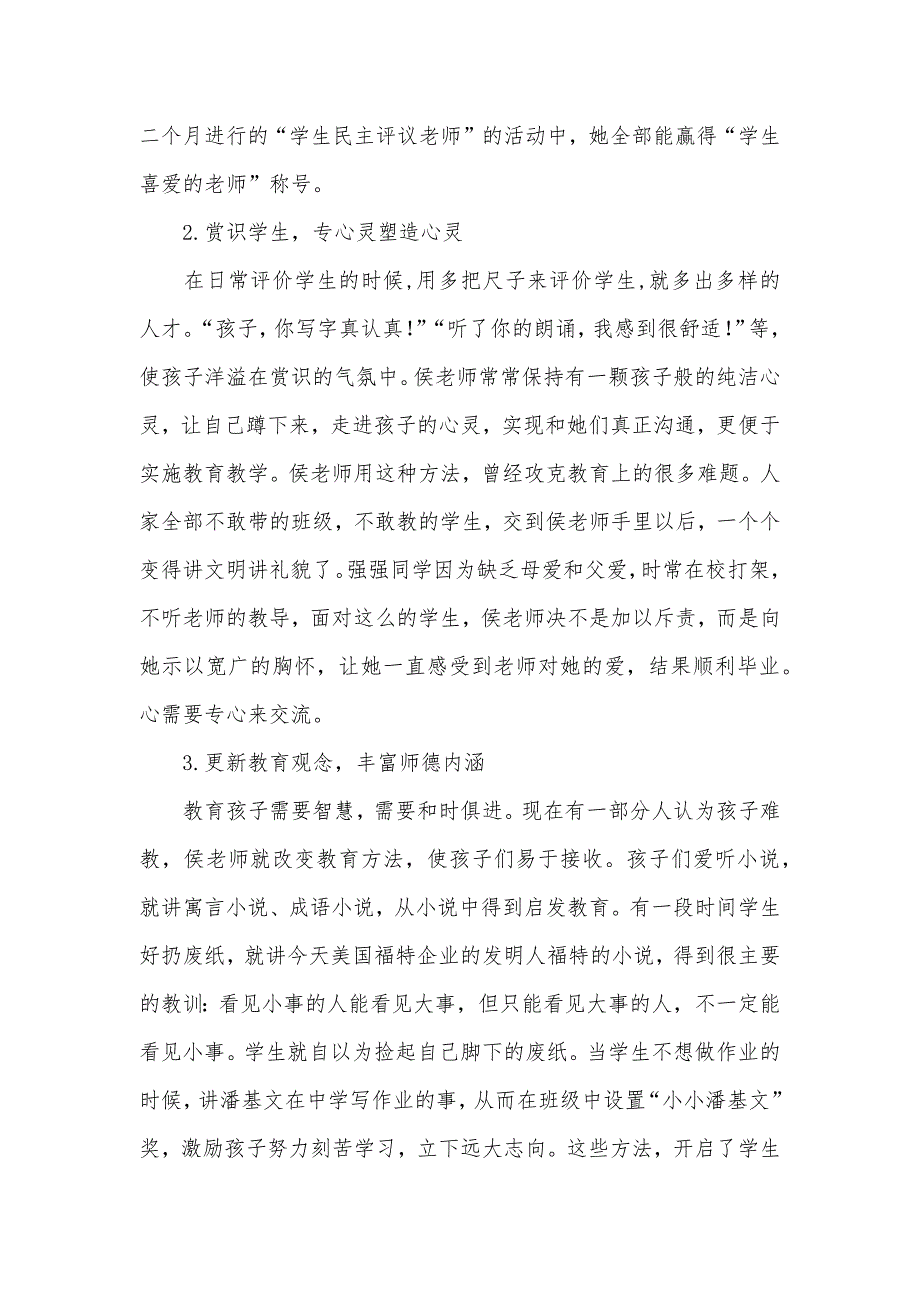 二个月进行的“学生民主评议老师”的活动中，她全部能赢得“学生
喜爱的老师”称号。
2.赏识学生，专心灵塑造心灵
在日常评价学生的时候,用多把尺子来评价学生,就多出多样的
人才。“孩子，你写字真认真！”“听了你的朗诵，我感到很舒适！”等，
使孩子洋溢在赏识的气氛中。侯老师常常保持有一颗孩子般的纯洁心
灵，让自己蹲下来，走进孩子的心灵，实现和她们真正沟通，更便于
实施教育教学。侯老师用这种方法，曾经攻克教育上的很多难题。人
家全部不敢带的班级，不敢教的学生，交到侯老师手里以后，一个个
变得讲文明讲礼貌了。强强同学因为缺乏母爱和父爱，时常在校打架，
不听老师的教导，面对这么的学生，侯老师决不是加以斥责，而是向
她示以宽广的胸怀，让她一直感受到老师对她的爱，结果顺利毕业。
心需要专心来交流。
3.更新教育观念，丰富师德内涵
教育孩子需要智慧，需要和时俱进。现在有一部分人认为孩子难
教，侯老师就改变教育方法，使孩子们易于接收。孩子们爱听小说，
就讲寓言小说、成语小说，从小说中得到启发教育。有一段时间学生
好扔废纸，就讲今天美国福特企业的发明人福特的小说，得到很主要
的教训：看见小事的人能看见大事，但只能看见大事的人，不一定能
看见小事。学生就自以为捡起自己脚下的废纸。当学生不想做作业的
时候，讲潘基文在中学写作业的事，从而在班级中设置“小小潘基文”
奖，激励孩子努力刻苦学习，立下远大志向。这些方法，开启了学生